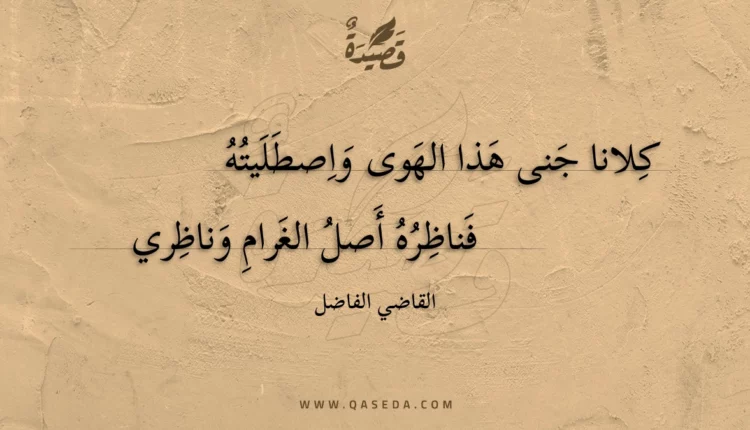 قَصِيدَةٌ
كِلانا جَنى هَذا الهَوى وَاِصطَلَيتُهُ
فَناظِرُهُ أَصلُ الغَرامِ وَناظِري
القاضي الفاضل
WWW.QASEDA.COM